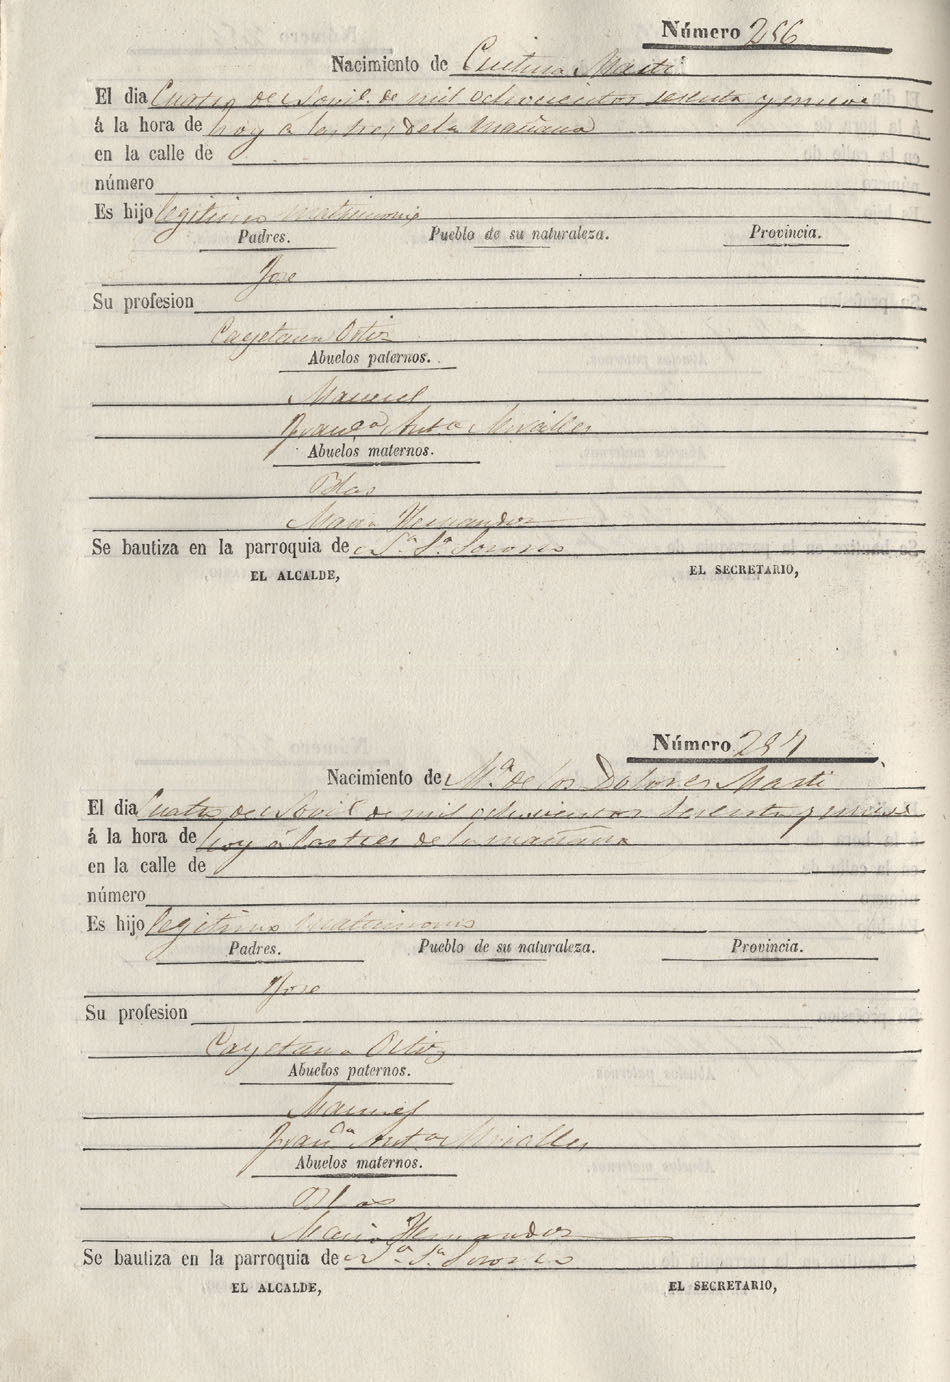 Número 286
Nacimiento de Cristina Marti
El dia Cuatro de Abril de mil ochocientos sesenta y nueve
á la hora de hoy á las tres de la mañana
en la calle de
número
Es hijo legitimo matrimonio
Padres. Pueblo de su naturaleza. Provincia.
Jose
Su profesion
Cayetana Ortiz
Abuelos paternos.
Manuel
Franca Anta Miralles
Abuelos maternos.
Blas
Maria Hernandez
Se bautiza en la parroquia de
EL ALCALDE, EL SECRETARIO,
Número 287
Nacimiento de Ma de los Dolores Marti
El dia Cuatro de Abril de mil ochocientos sesenta y nueve
á la hora de hoy á las tres de la mañana
en la calle de
número
Es hijo legitimo matrimonio
Padres. Pueblo de su naturaleza. Provincia.
Jose
Su profesion
Cayetana Ortiz
Abuelos paternos.
Manuel
Franca Anta Miralles
Abuelos maternos.
Blas
Maria Hernandez
Se bautiza en la parroquia de
EL ALCALDE, EL SECRETARIO,